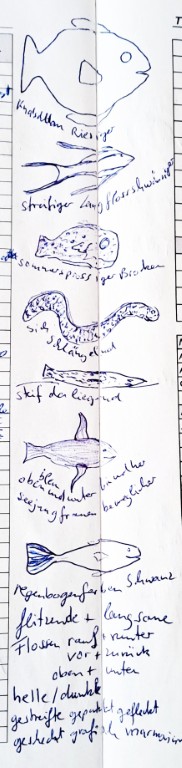 Riesiger
streifiger Langflossschwänziger
sommersprossiger Brocken
sich schlängelnd
steif da liegend
oben und unten
seejungfrauen beweglicher
regenbogenfarben Schwanz
flitzende + langsame
Flossen rauf + runter
vor + zurück
oben + unten
helle/dunkle
gestreifte gepunktet gefleckt
gescheckt grafisch marmoriert